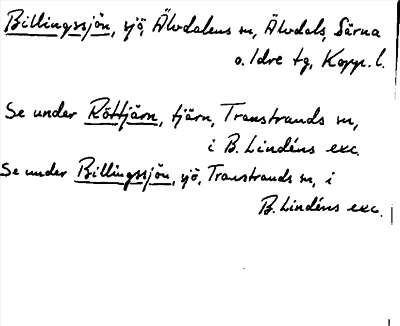 Billingssjön, sjö, Älvdalens sn, Älvdals, Särna
o. Idre tg, Kopp. l.
Se under Röttjärn, tjärn, Transtrands sn,
i B. Lindéns exc.
Se under Billingssjön, sjö, Transtrands sn, i
B. Lindéns exc.